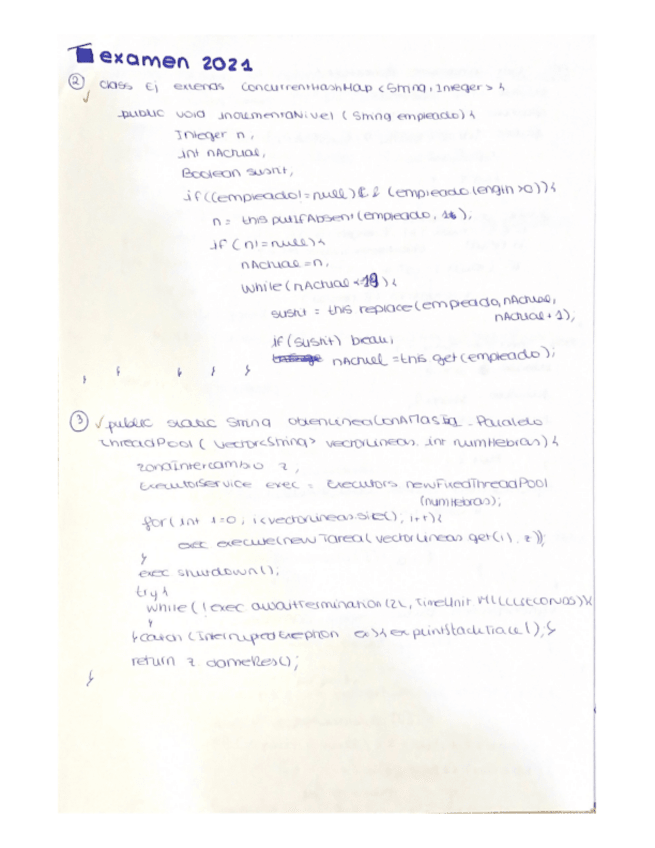 examen 2021
② class Ej extends ConcurrentHashMap <String, Integer> {
public void incrementaNivel ( String empleado) {
Integer n,
int nActual,
Boolean sustit,
if ((empleado != null) && (empleado length >0)) {
n = this putIfAbsent (empleado, ),
if ( n != null) {
nActual = n,
while (nActual < 19) {
sustit = this replace (empleado, nActual,
nActual + 1),
if (sustit) break;
nActual = this get (empleado);
} } } } }
③ public static String obtenLineaConAMasIg - Paralelo
ThreadPool ( Vector<String> vectorLineas, int numHebras) {
zonaIntercambio z,
ExecutorService exec = Executors newFixedThreadPool
(numHebras);
for ( int i=0; i<vectorLineas.size(); i++) {
exec execute(new Tarea( vectorLineas get(i), z));
}
exec shutdown();
try {
while ( ! exec awaitTermination (2L, TimeUnit MILLISECONDS)) {
}
} catch ( InterruptedException ex) { ex printStackTrace(); }
return z dameRes();
}